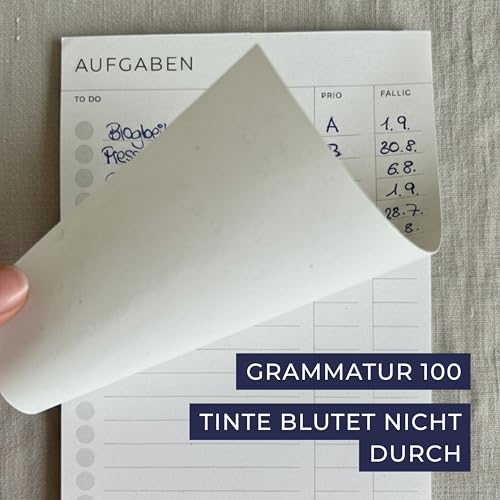 AUFGABEN
TO DO PRIO FÄLLIG
A 1.9.
30.8.
6.8.
1.9.
28.7.
8.
GRAMMATUR 100
TINTE BLUTET NICHT
DURCH